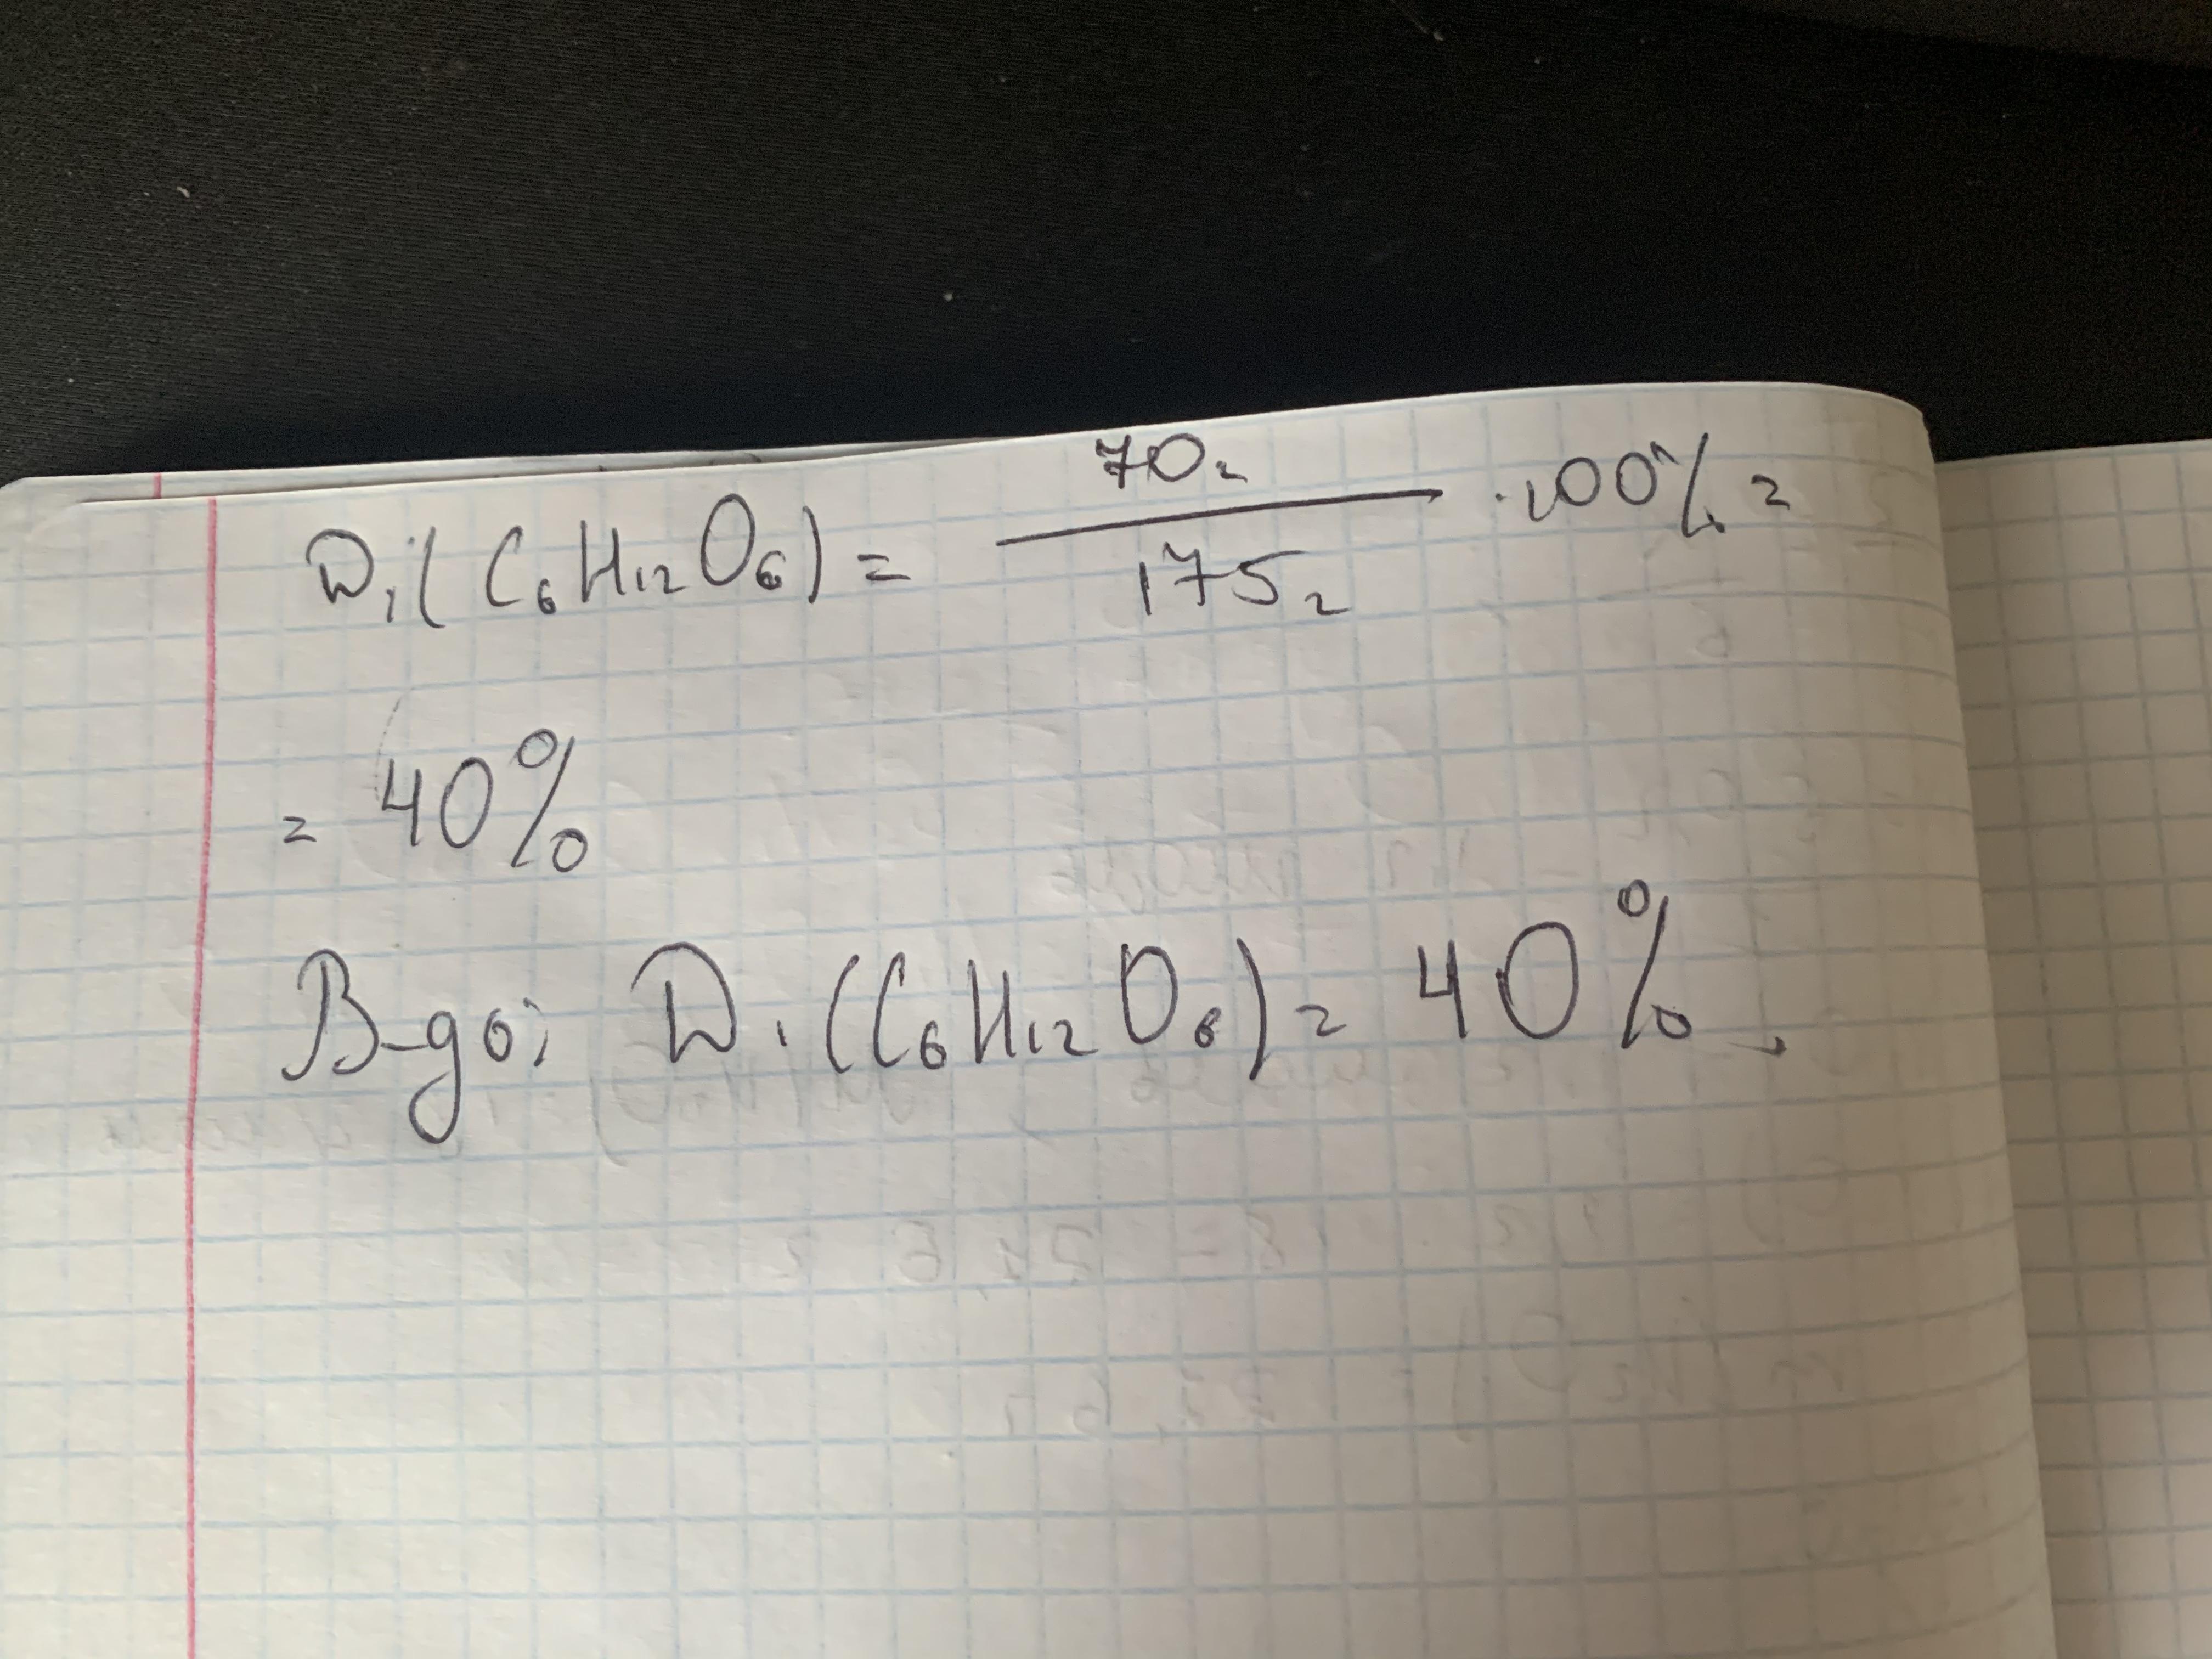 W₁(C₆H₁₂O₆) = 70г / 175г · 100% =
= 40%
В-дь: W₁(C₆H₁₂O₆) = 40%.